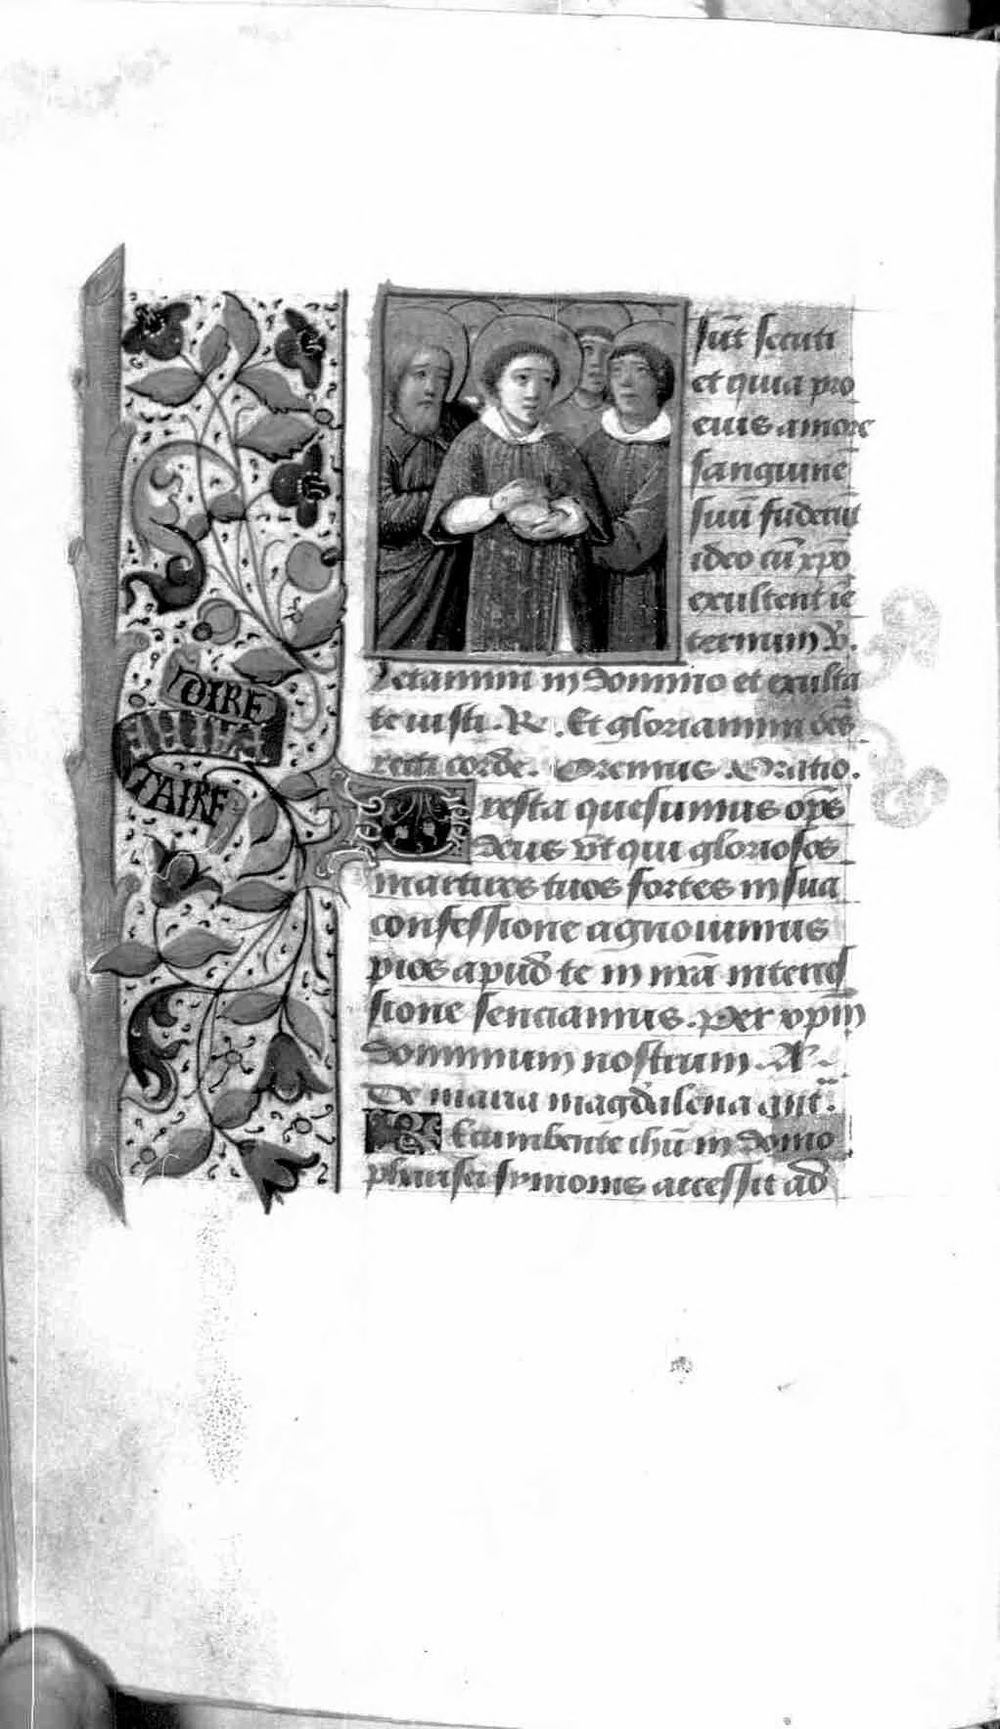 DIRE
TAIRE
sūt secuti
et quia pro
euis amore
sanguinē
suū fuderūt
ideo cū xp̄o
exultent ī e
ternum. V̄.
Letamini in domino et exulta
te iusti. R̄. Et gloriamini oēs
recti corde. Oremus. Oratio.
Presta quesumus op̄s
deus vt qui gloriosos
martires tuos fortes in sua
confessione agnouimus
pios apud te in nrā interces
sione senciamus. per xp̄m
dominum nostrum. A.
De maria magdalena ant̄.
Recumbente ihū in domo
pharisei symonis accessit ad